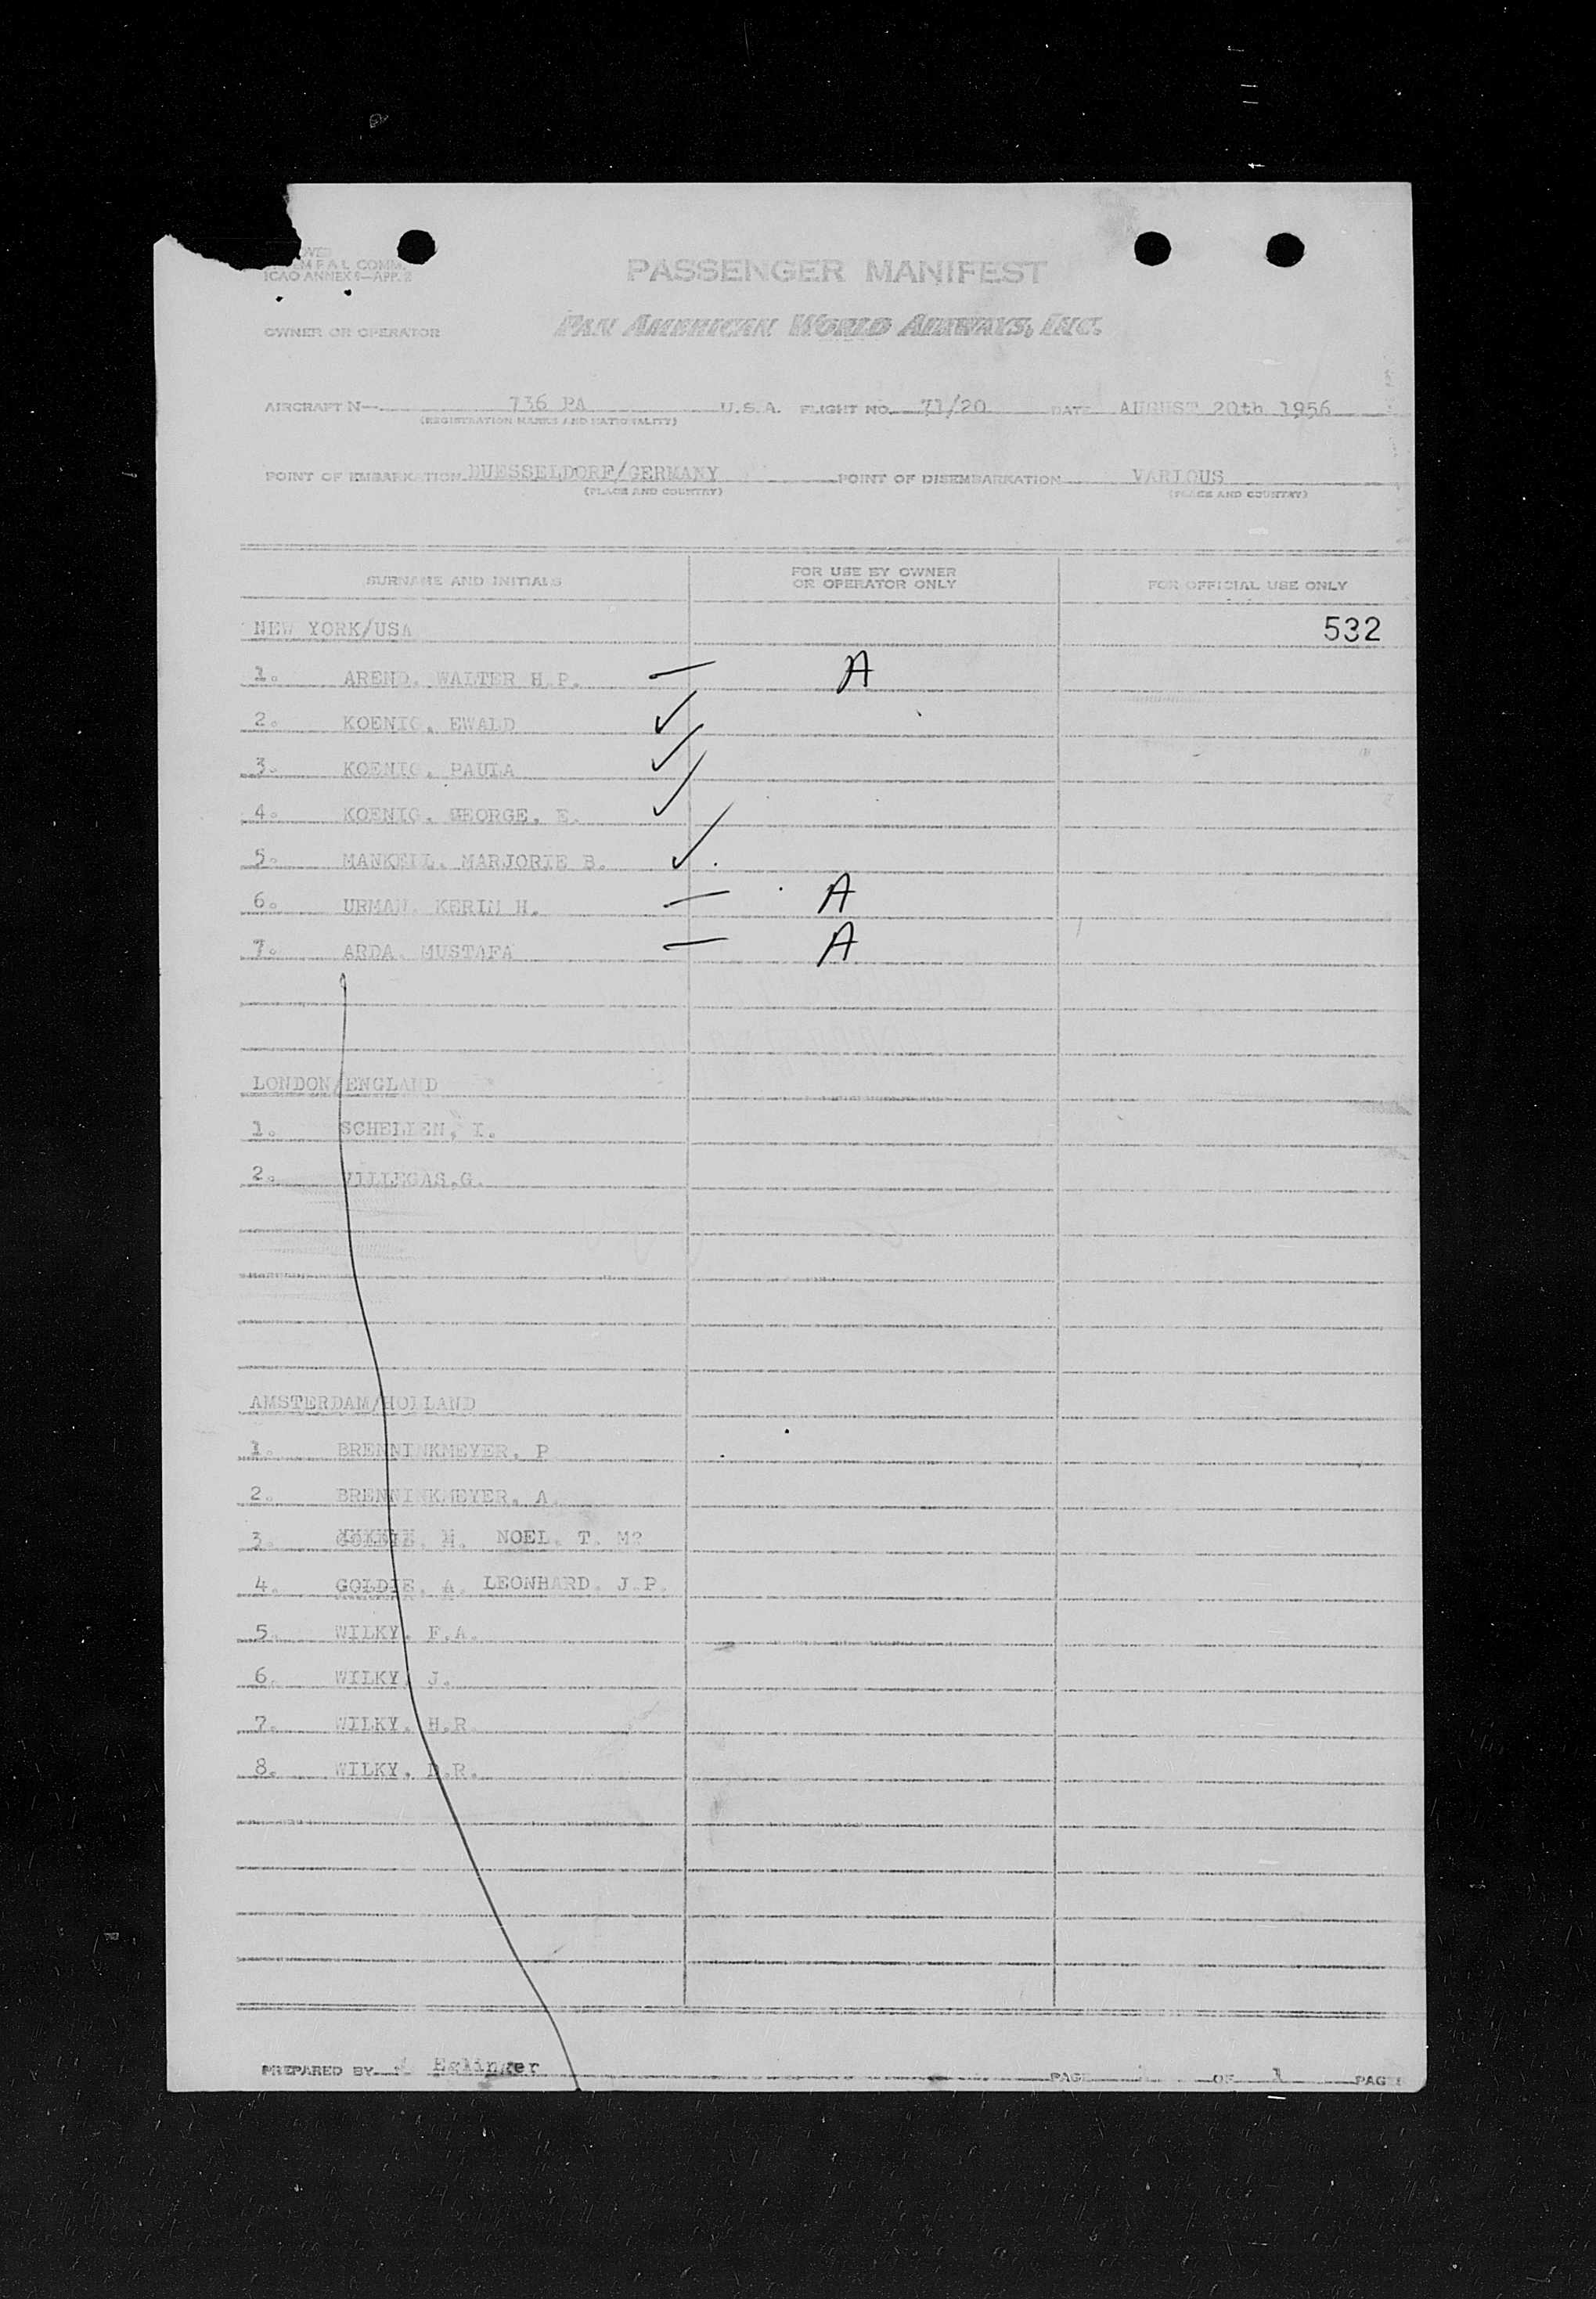 F A L COMM.
ICAO ANNEX 9—APP. 2
PASSENGER MANIFEST
OWNER OR OPERATOR PAN AMERICAN WORLD AIRWAYS, INC.
AIRCRAFT N— 736 PA U.S.A. FLIGHT NO. 71/20 DATE AUGUST 20th 1956
(REGISTRATION MARKS AND NATIONALITY)
POINT OF EMBARKATION DUESSELDORF/GERMANY POINT OF DISEMBARKATION VARIOUS
(PLACE AND COUNTRY) (PLACE AND COUNTRY)
SURNAME AND INITIALS FOR USE BY OWNER OR OPERATOR ONLY FOR OFFICIAL USE ONLY
NEW YORK/USA 532
1. AREND, WALTER H.P. — A
2. KOENIG, EWALD ✓
3. KOENIG, PAULA ✓
4. KOENIG, GEORGE, E. ✓
5. MANKEIL, MARJORIE B. ✓
6. URMAN, KERIM H. — A
7. ARDA, MUSTAFA — A
LONDON/ENGLAND
1. SCHELLEN, I.
2. VILLEGAS,G.
AMSTERDAM/HOLLAND
1. BRENNINKMEYER, P
2. BRENNINKMEYER, A.
3. H. NOEL, T. M
4. GOLDIE, A. LEONHARD, J.P.
5. WILKY, F.A.
6. WILKY, J.
7. WILKY, H.R.
8. WILKY, D.R.
PREPARED BY Eglinger PAGE OF 1 PAGES